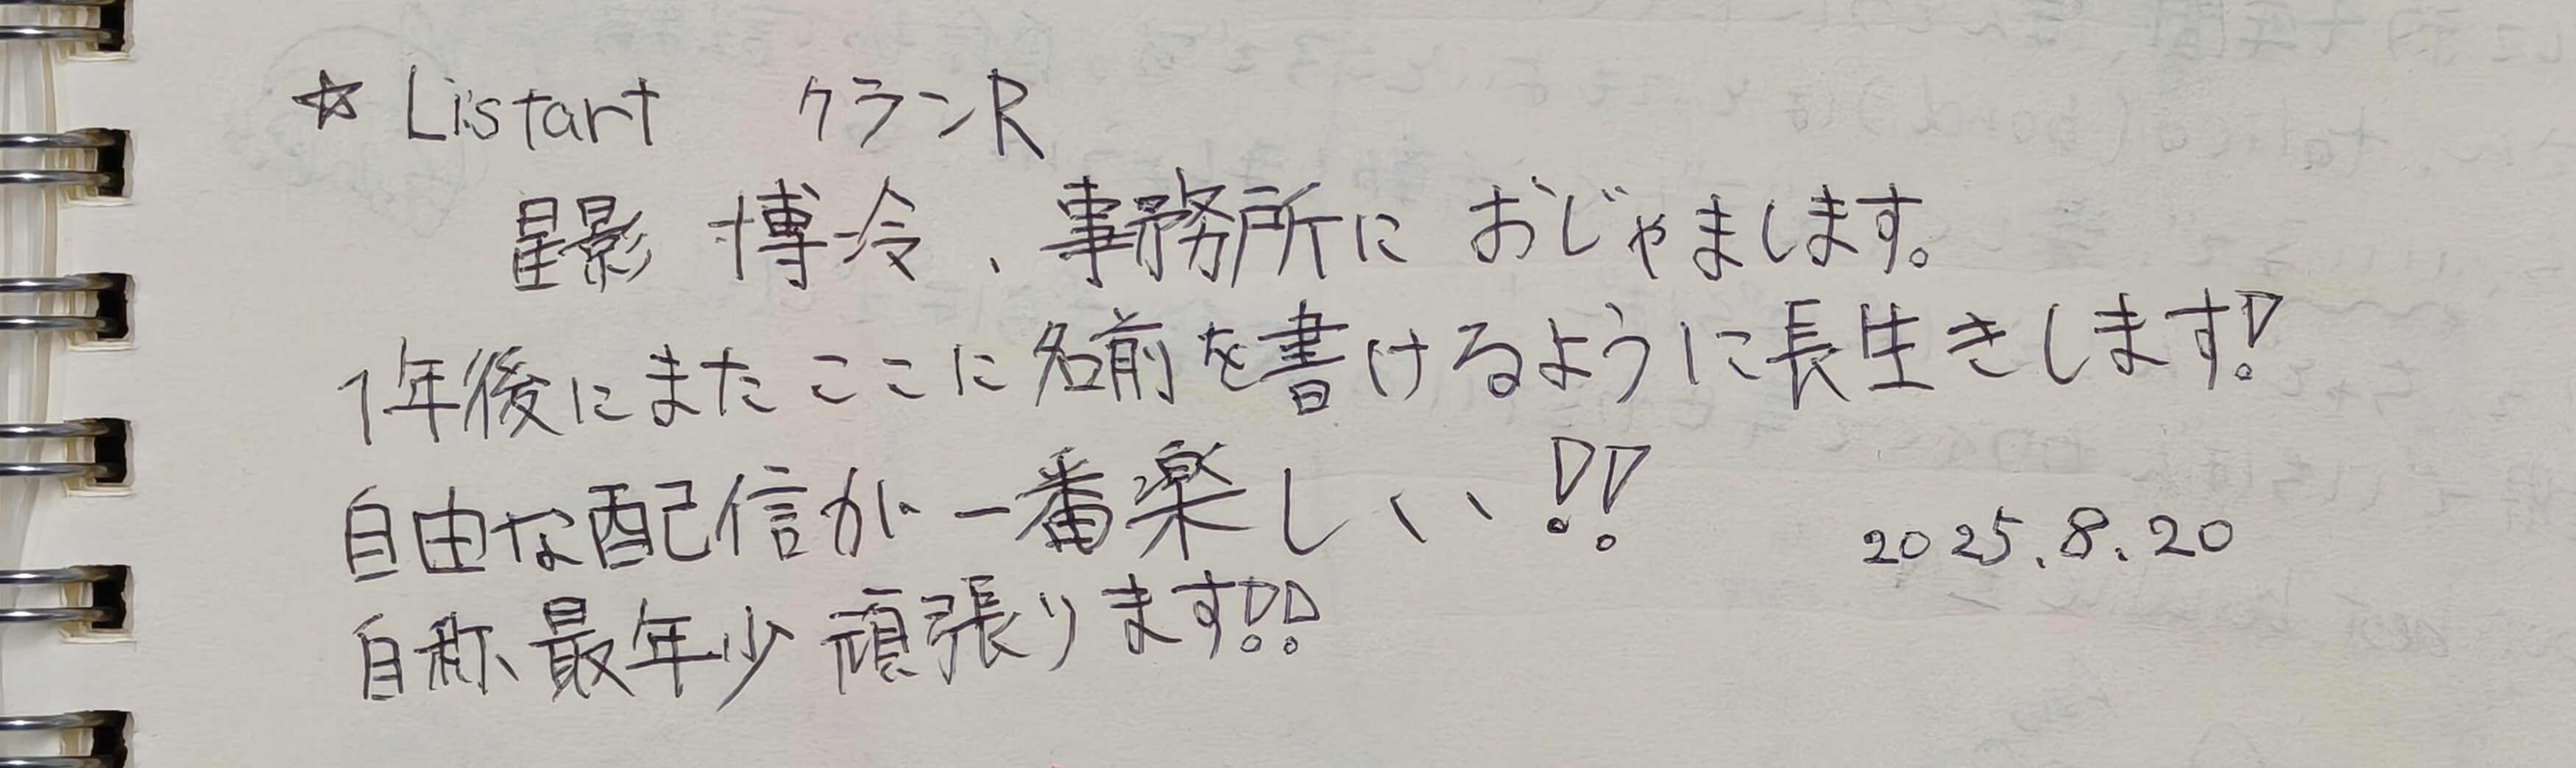 ☆ Listart クランR
星影 博冷、事務所に おじゃまします。
1年後にまたここに名前を書けるように長生きします!
自由な配信が一番楽しい!! 2025.8.20
自称最年少頑張ります!!